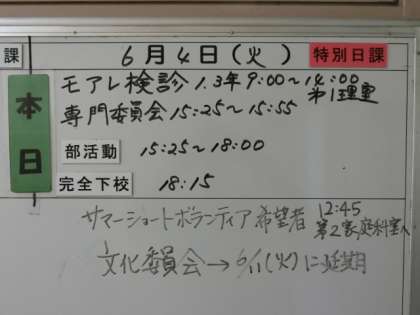 課 6月4日(火) 特別日課
本日
モアレ検診 1.3年 9:00〜14:00
第1理室
専門委員会 15:25〜15:55
部活動 15:25〜18:00
完全下校 18:15
サマーショートボランティア希望者 12:45
第2家庭科室へ
文化委員会→6/11(火)に延期